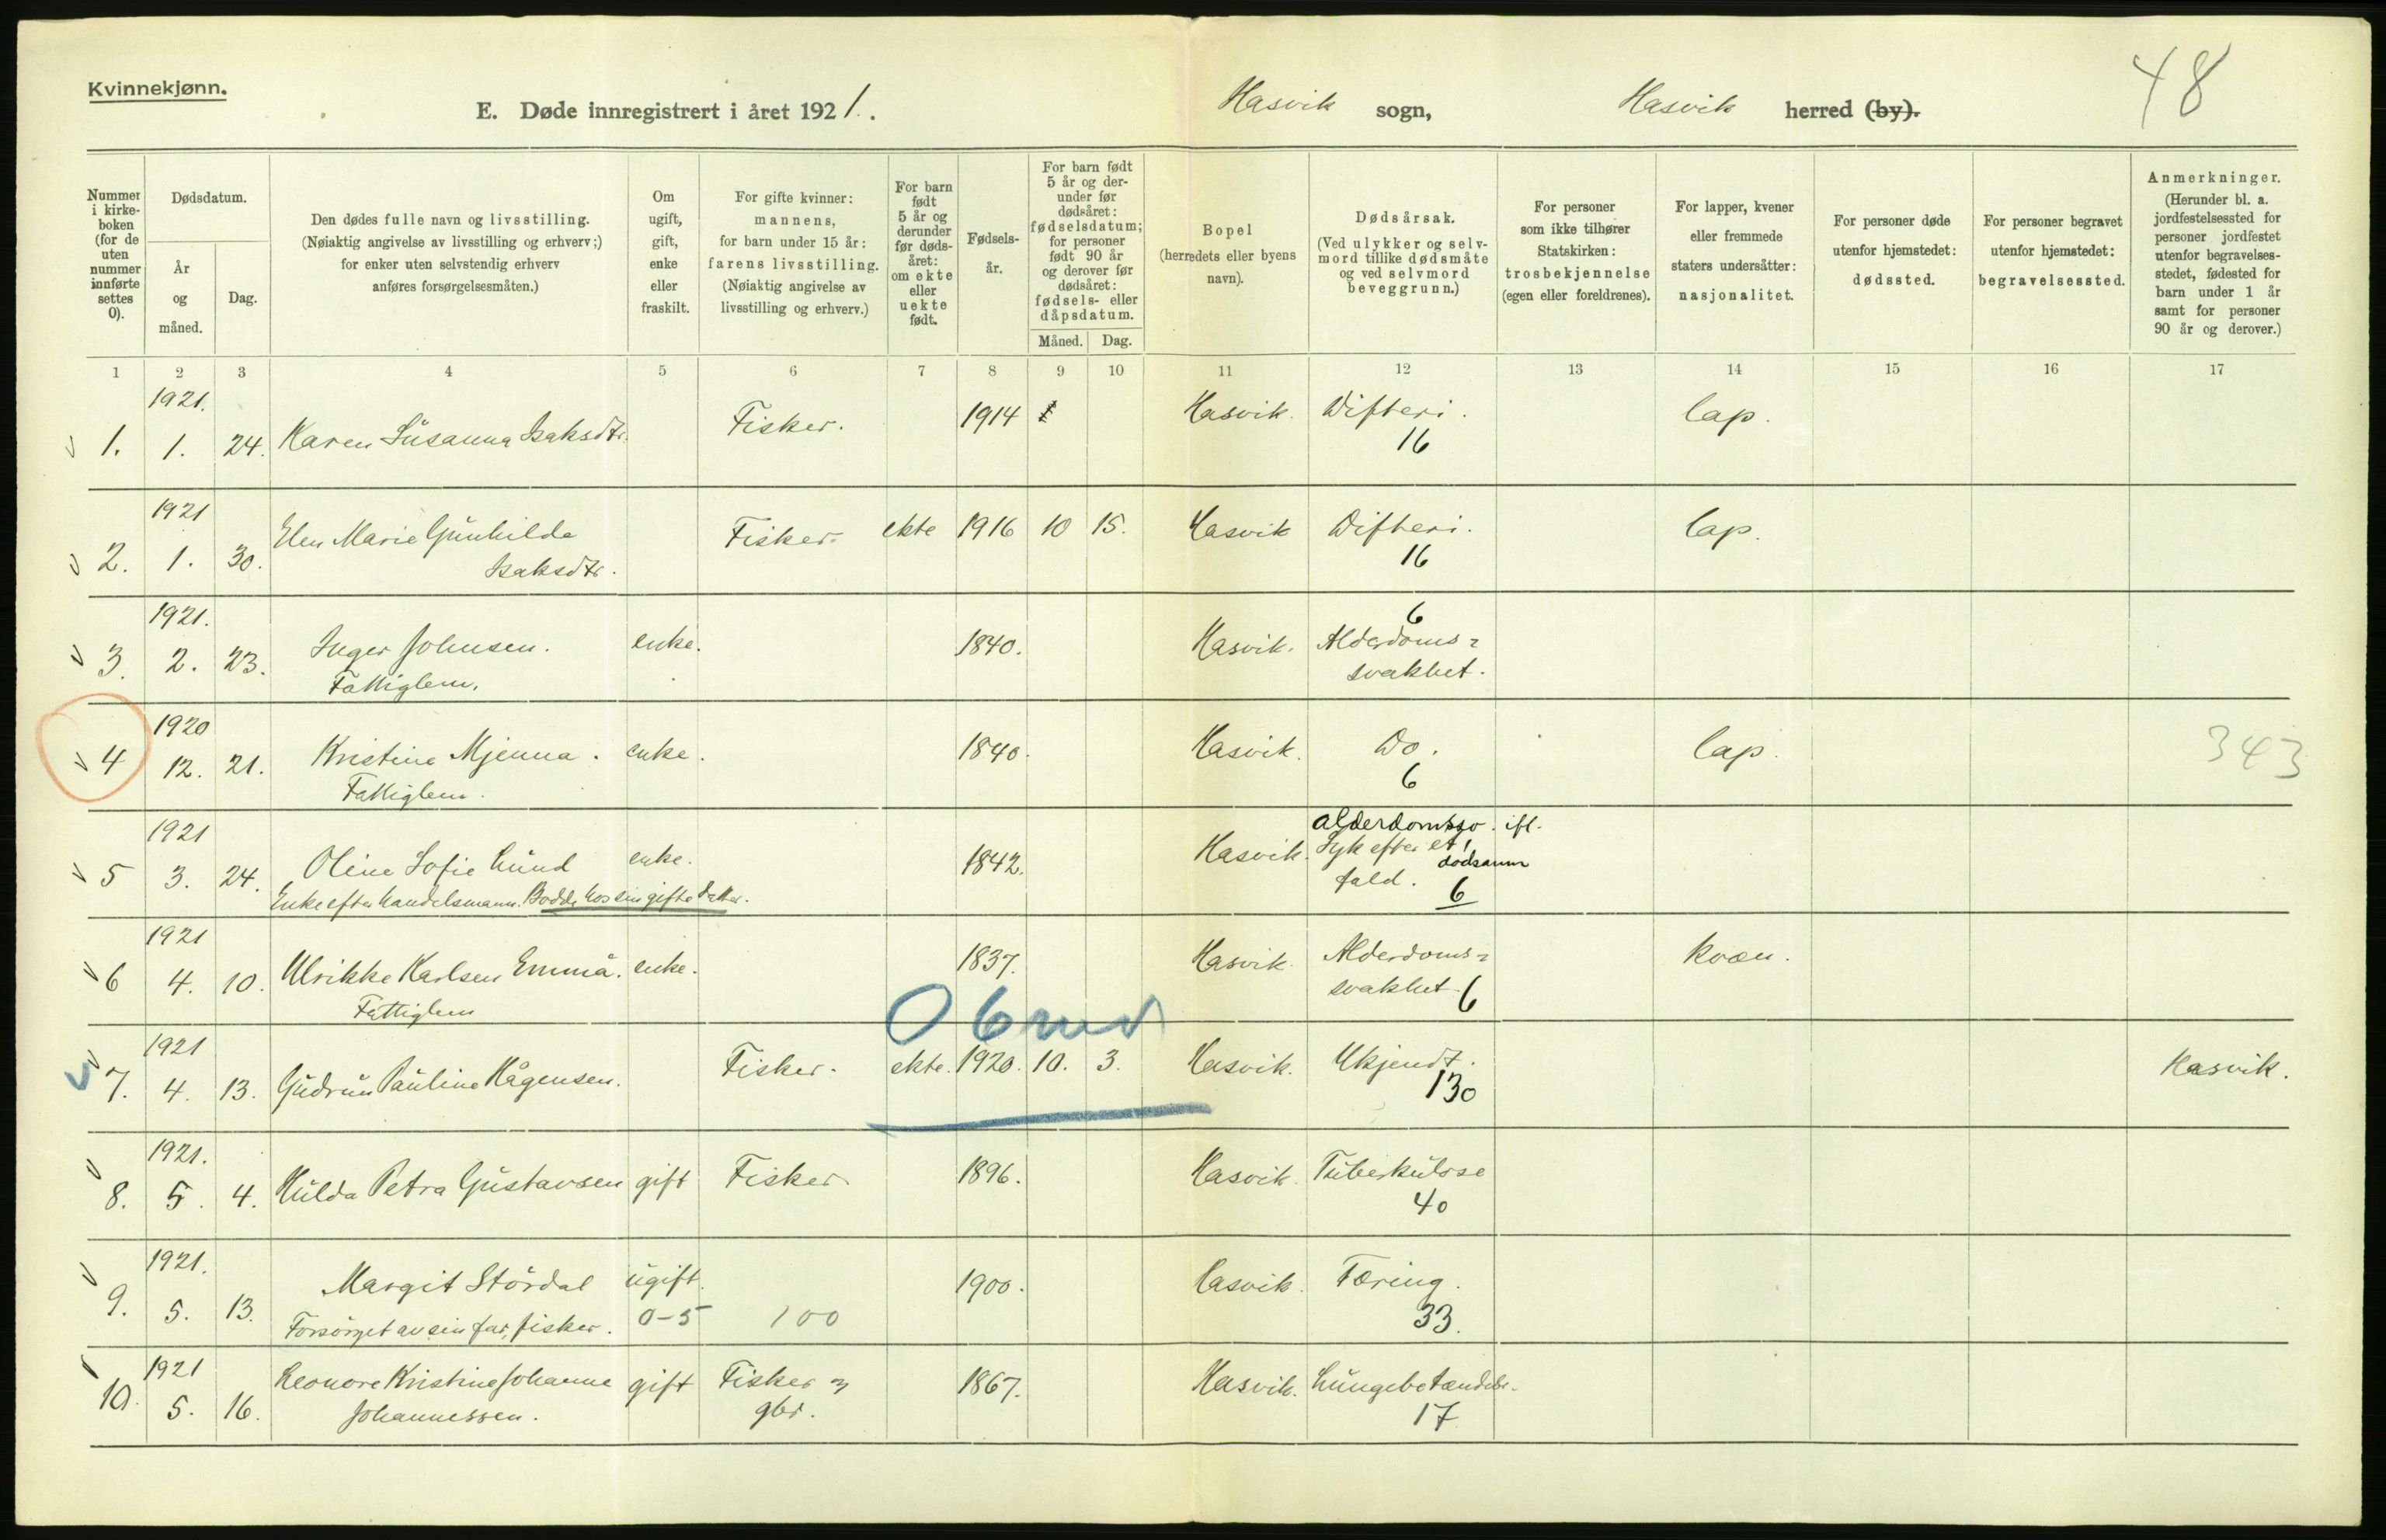 Kvinnekjønn.
E. Døde innregistrert i året 1921. Hasvik sogn, Hasvik herred (by). 48
Nummer i kirkeboken (for de uten nummer innførte settes 0).
Dødsdatum.
År og måned.
Dag.
Den dødes fulle navn og livsstilling.
(Nøiaktig angivelse av livsstilling og erhverv;)
for enker uten selvstendig erhverv
anføres forsørgelsesmåten.)
Om ugift, gift, enke eller fraskilt.
For gifte kvinner:
mannens,
for barn under 15 år:
farens livsstilling.
(Nøiaktig angivelse av
livsstilling og erhverv.)
For barn født 5 år og derunder før dødsåret: om ekte eller uekte født.
Fødselsår.
For barn født 5 år og derunder før dødsåret: fødselsdatum; for personer født 90 år og derover før dødsåret: fødsels- eller dåpsdatum.
Måned. Dag.
Bopel
(herredets eller byens
navn).
Dødsårsak.
(Ved ulykker og selvmord tillike dødsmåte og ved selvmord beveggrunn.)
For personer
som ikke tilhører
Statskirken:
trosbekjennelse
(egen eller foreldrenes).
For lapper, kvener
eller fremmede
staters undersåtter:
nasjonalitet.
For personer døde
utenfor hjemstedet:
dødssted.
For personer begravet
utenfor hjemstedet:
begravelsessted.
Anmerkninger.
(Herunder bl. a.
jordfestelsessted for
personer jordfestet
utenfor begravelsesstedet, fødested for
barn under 1 år
samt for personer
90 år og derover.)
1 2 3 4 5 6 7 8 9 10 11 12 13 14 15 16 17
1921.
1. 1. 24. Karen Susanna Isaksdtr. Fisker. 1914 Hasvik. Difteri. lap.
16
1921
2. 1. 30. Elen Marie Gunhilda Fisker. ekte 1916 10 15. Hasvik Difteri. lap.
Isaksdtr.
16
1921.
6
3. 2. 23. Inger Johnsen. enke. 1840. Hasvik. Alderdoms=
Fattiglem. svakhet.
1920
4 12. 21. Kristine Mjenna. enke. 1840. Hasvik. Do. lap. 343
Fattiglem. 6
1921 alderdomssv. ifl.
5 3. 24. Oline Sofie Lund enke. 1842. Hasvik. Syk efter et
dødsanm
Enke efter handelsmann. Bodde hos sin gifte datter. fald. 6
1921
6 4. 10. Ulrikke Karlsen Emma. enke. 1837. Hasvik. Alderdoms= kvæn.
Fattiglem svakhet. 6
1921
7. 4. 13. Gudrun Pauline Hågensen. Fisker. ekte. 1920. 10. 3. Hasvik. Ukjendt. Hasvik.
130
1921.
8. 5. 4. Hulda Petra Gustavsen gift Fisker 1896. Hasvik. Tuberkulose
40
1921.
9. 5. 13. Margit Stördal ugift. 1900. Hasvik. Tæring.
Forsörget av sin far, fisker. 0-5 100 33.
1921
10. 5. 16. Leonore Kristine Johanne gift Fisker 1867. Hasvik. Lungebetændelse.
Johannessen. gbr. 17